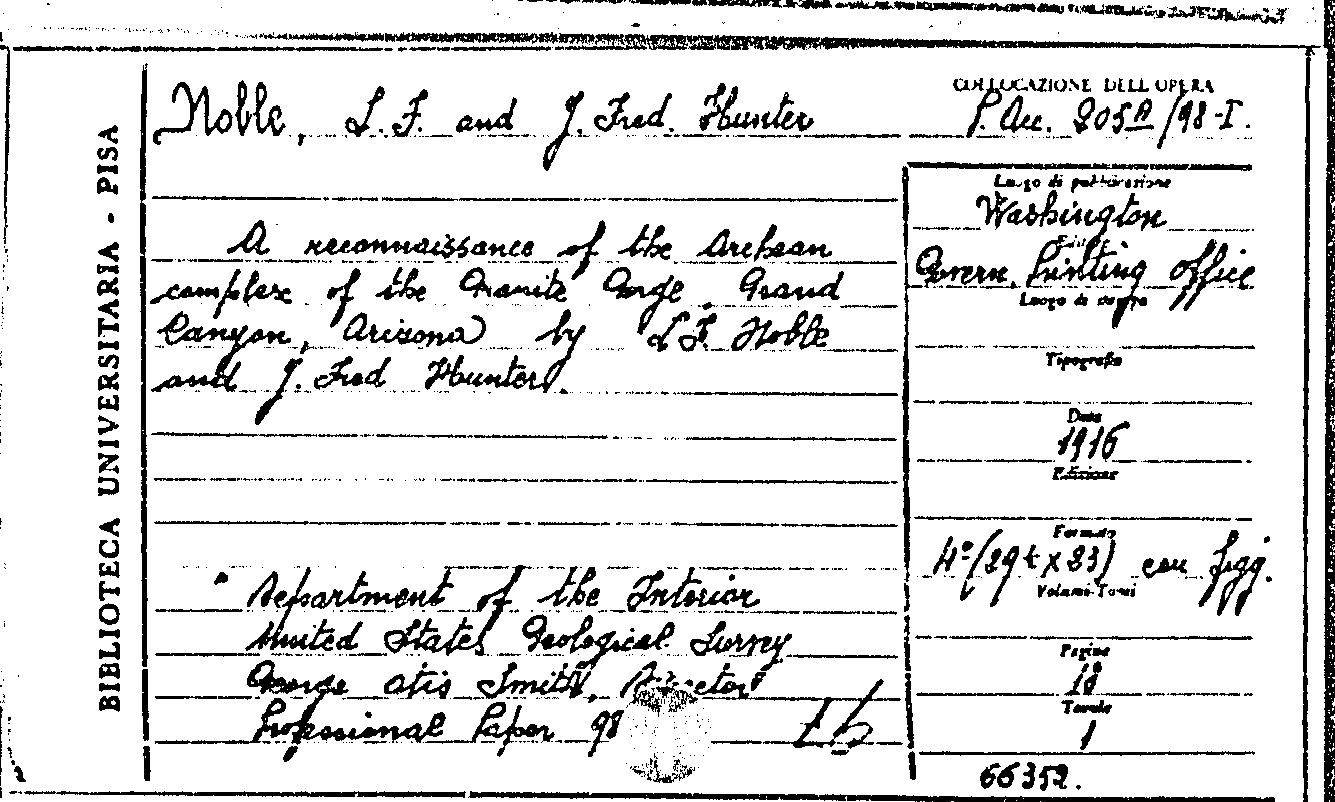 BIBLIOTECA UNIVERSITARIA - PISA
Noble, L. F. and J. Fred. Hunter
A reconnaissance of the Archean
complex of the Granite Gorge, Grand
Canyon, Arizona by L.F. Noble
and J. Fred Hunter.
Department of the Interior
United States Geological Survey
George Otis Smith, Director
Professional Paper 98
COLLOCAZIONE DELL'OPERA
P. Acc. 205A/98-I.
Luogo di pubblicazione
Washington
Govern. Printing Office
Luogo di stampa
Tipografo
Data
1916
Edizione
Formato
4º (29 x 23) con figg.
Volumi-Tomi
Pagine
Tavole
1
66352.